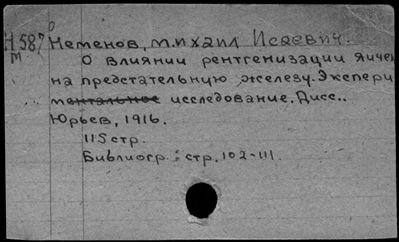 Н587 Неменов, Михаил Исаевич.
М О влиянии рентгенизации яичек
на предстательную железу. Экспери
ментальное исследование. Дисс..
Юрьев, 1916.
115 стр.
Библиогр.: стр. 102-111.